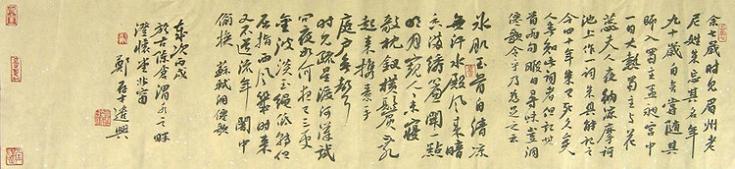 余七歲時見眉州老
尼姓朱忘其名年
九十歲自言嘗隨其
師入蜀主孟昶宮中
一日大熱蜀主與花
蕊夫人夜納涼摩訶
池上作一詞朱具能記之
今四十年朱已死久矣
人無知此詞者但記其
首兩句暇日尋味豈洞
仙歌令乎乃為足之云
冰肌玉骨自清涼
無汗水殿風來暗
香滿繡簾開一點
明月窺人人未寢
欹枕釵橫鬢亂
起來攜素手
庭戶無聲
時見疏星渡河漢試
問夜如何夜已三更
金波淡玉繩低轉但
屈指西風幾時來
又不道流年暗中
偷換 蘇軾洞仙歌
歲次丙戌
於古之畔
澄懷堂北窗
鄭遣興